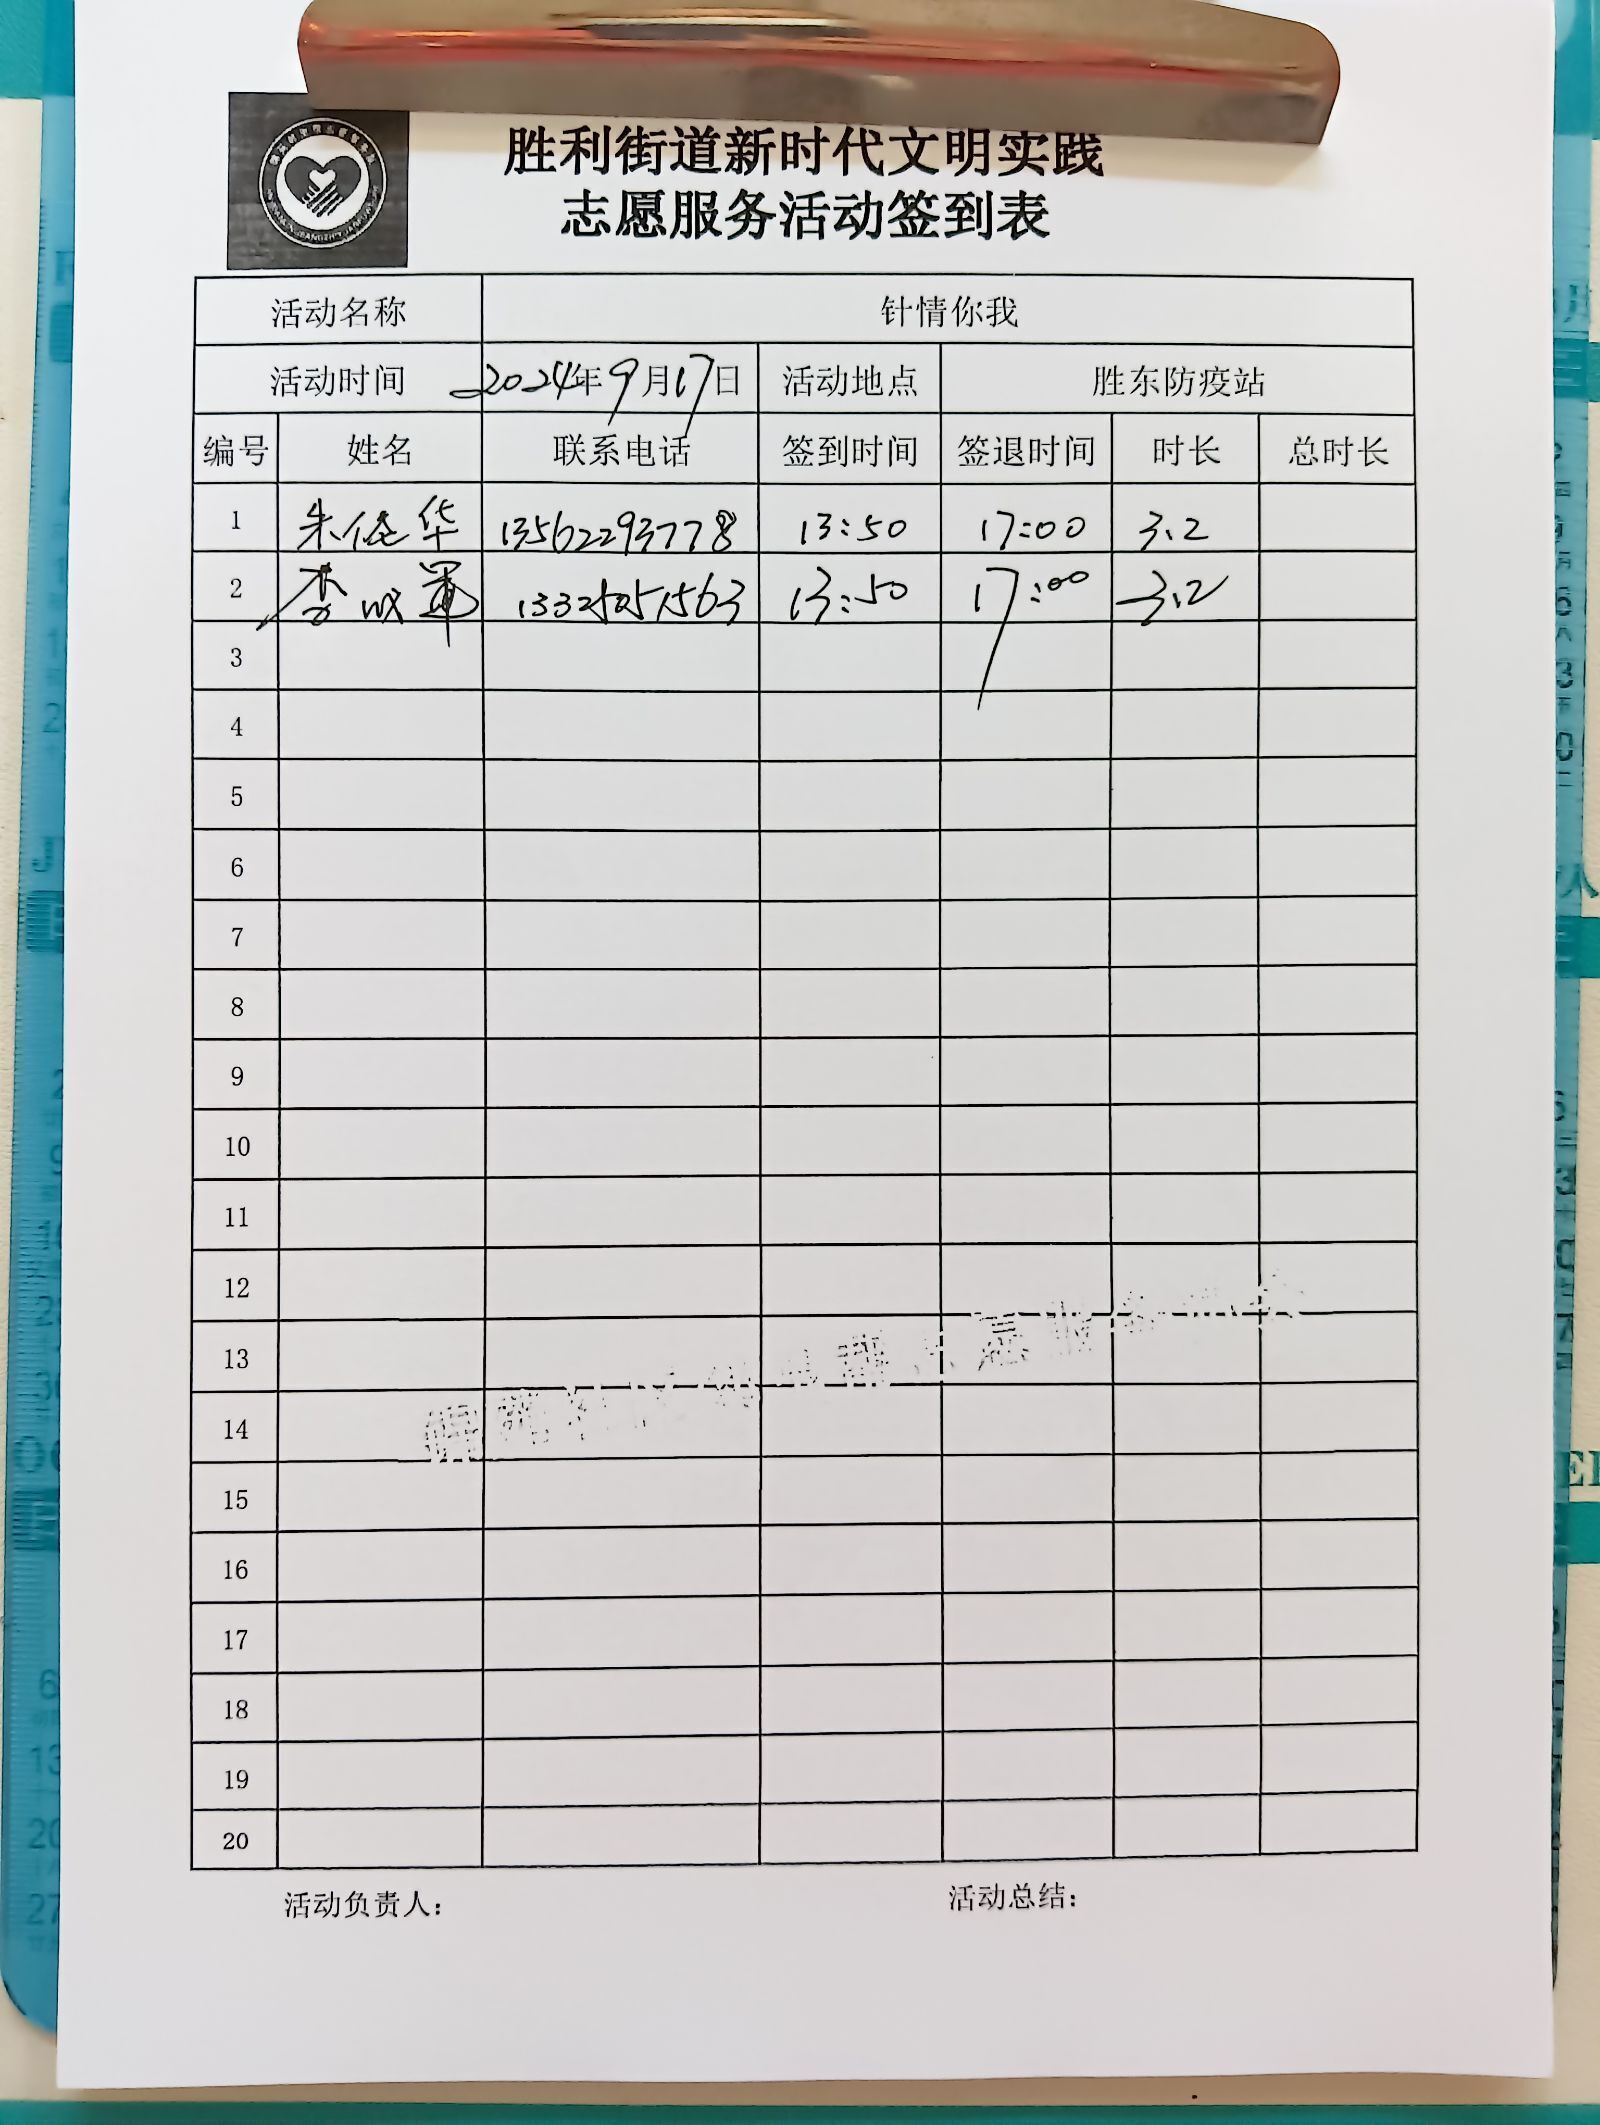 胜利街道新时代文明实践
志愿服务活动签到表
活动名称 针情你我
活动时间 2024年9月17日 活动地点 胜东防疫站
编号 姓名 联系电话 签到时间 签退时间 时长 总时长
1 朱 华 13562293778 13:50 17:00 3.2
2 李 军 13325051563 13:50 17:00 3.2
3
4
5
6
7
8
9
10
11
12
13
14
15
16
17
18
19
20
活动负责人: 活动总结: